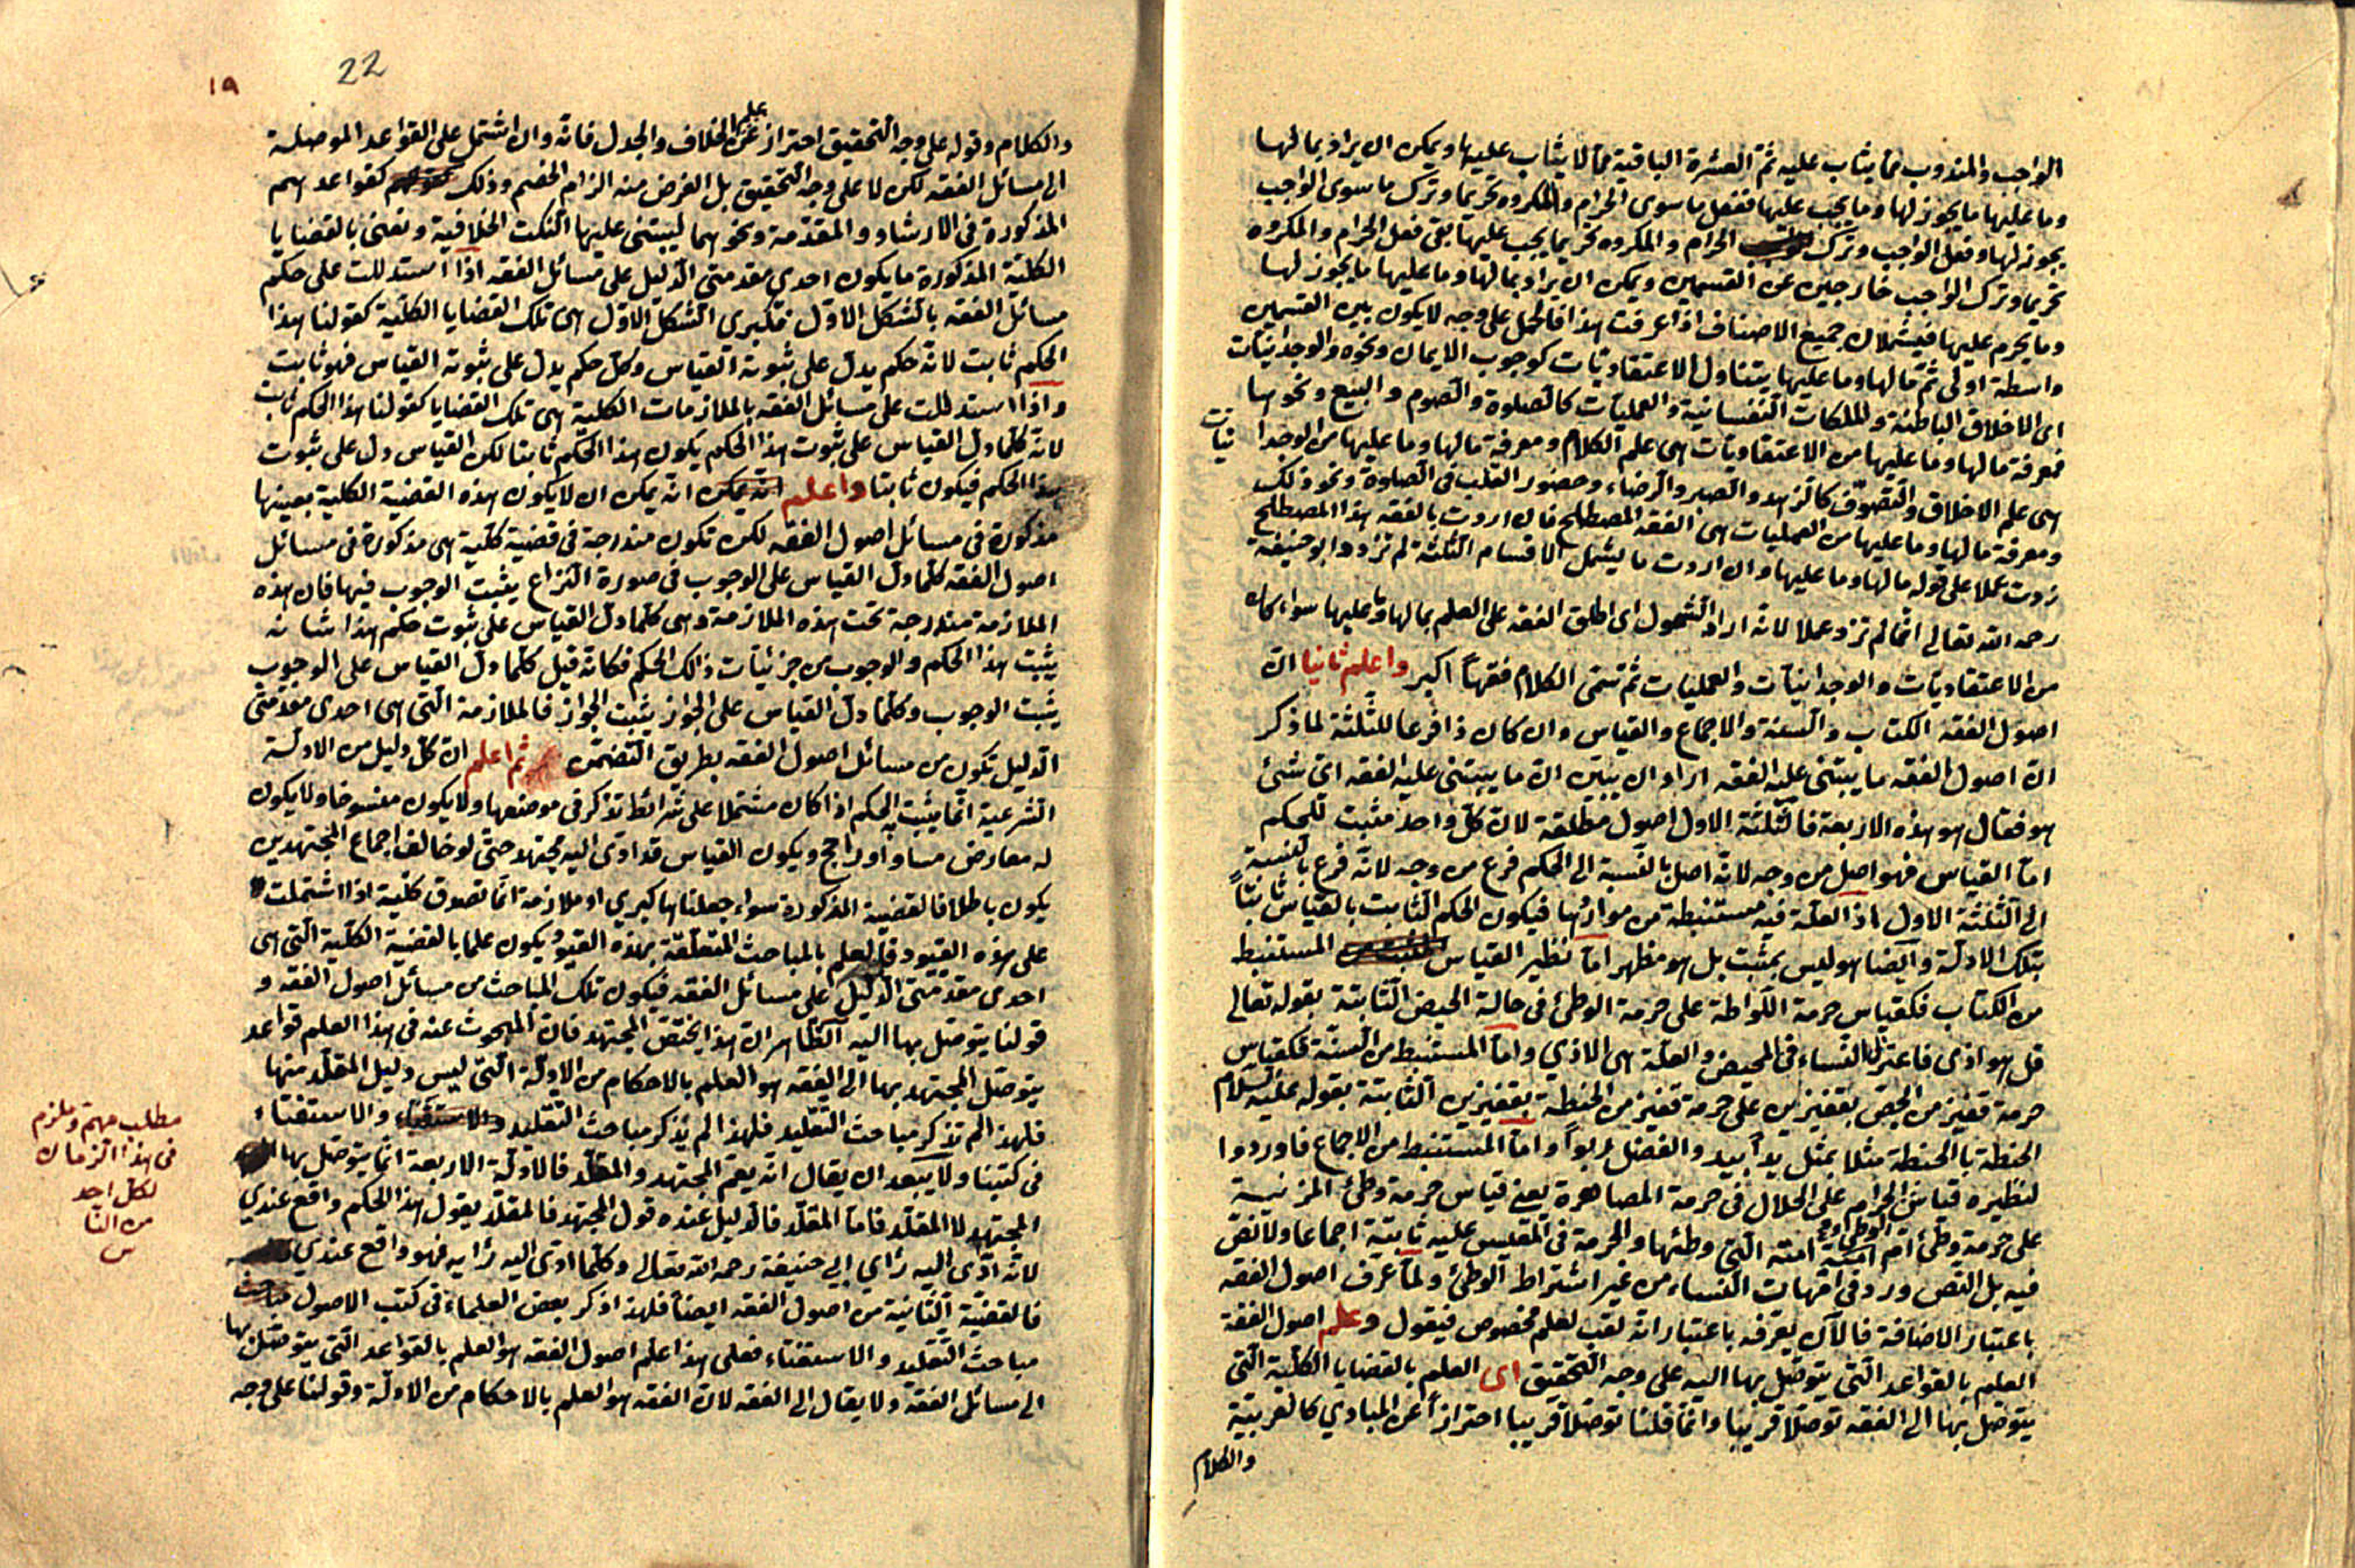 الواجب والمندوب مما يثاب عليه ثم العشرة الباقية مما لا يثاب عليها ويمكن ان يراد بما لها
وما عليها ما يجوز لها وما يجب عليها ففعل ما سوى الحرام والمكروه تحريما وترك ما سوى الواجب
يجوز لها وفعل الواجب وترك الحرام والمكروه تحريما يجب عليها بقى فعل الحرام والمكروه
تحريما وترك الواجب خارجين عن القسمين ويمكن ان يراد بما لها وما عليها ما يجوز لها
وما يحرم عليها فيشملان جميع الاصناف اذا عرفت هذا فالحمل على وجه لا يكون بين القسمين
واسطة اولى ثم ما لها وما عليها يتناول الاعتقاديات كوجوب الايمان ونحوه والوجدانيات
اى الاخلاق الباطنة والملكات النفسانية والعمليات كالصلوة والصوم والبيع ونحوها
فمعرفة ما لها وما عليها من الاعتقاديات هى علم الكلام ومعرفة ما لها وما عليها من الوجدا نيات
هى علم الاخلاق والتصوف كالزهد والصبر والرضاء وحضور القلب فى الصلوة ونحو ذلك
ومعرفة ما لها وما عليها من العمليات هى الفقه المصطلح فان اردت بالفقه هذا المصطلح
زدت عملا على قوله ما لها وما عليها وان اردت ما يشمل الاقسام الثلثة لم تزد وابو حنيفة
رحمه الله تعالى انما لم تزد عملا لانه اراد الشمول اى اطلق الفقه على العلم بما لها وما عليها سواء كان
من الاعتقاديات والوجدانيات والعمليات ثم سمى الكلام فقهاً اكبر واعلم ثانيا ان
اصول الفقه الكتاب والسنة والاجماع والقياس وان كان ذا فرعا للثلثة لما ذكر
ان اصول الفقه ما يبتنى عليه الفقه اراد ان يبين ان ما يبتنى عليه الفقه اى شئ
هو فقال هو هذه الاربعة فالثلثة الاول اصول مطلقة لان كل واحد مثبت للحكم
اما القياس فهو اصل من وجه لانه اصل بالنسبة الى الحكم فرع من وجه لانه فرع بالنسبة
الى الثلثة الاول اذ العلة فيه مستنبطة من مواردها فيكون الحكم الثابت بالقياس ثابتاً
بتلك الادلة وايضا هو ليس بمثبت بل هو مظهر اما نظير القياس المستنبط
من الكتاب فكقياس حرمة اللواطة على حرمة الوطئ فى حالة الحيض الثابتة بقوله تعالى
قل هو اذى فاعتزلوا النساء فى المحيض والعلة هى الاذى واما المستنبط من السنة فكقياس
حرمة قفيز من الجص بقفيزين على حرمة قفيز من الحنطة بقفيزين الثابتة بقوله عليه السلام
الحنطة بالحنطة مثلا بمثل يدا بيد والفضل ربواً واما المستنبط من الاجماع فاوردوا
لنظيره قياس الحرام على الحلال فى حرمة المصاهرة يعنى قياس حرمة وطئ المزنية
على حرمة وطئ ام امته التى وطئها والحرمة فى المقيس عليه ثابتة اجماعا ولا نص
فيه بل النص ورد فى امهات النساء من غير اشتراط الوطئ ولما عرف اصول الفقه
باعتبار الاضافة فالآن يعرفه باعتبار انه لقب لعلم مخصوص فيقول وعلم اصول الفقه
العلم بالقواعد التى يتوصل بها اليه على وجه التحقيق اى العلم بالقضايا الكلية التى
يتوصل بها الى الفقه توصلا قريبا وانما قلنا توصلا قريبا احترازاً عن المبادى كالعربية
والكلام
١٩
22
والكلام وقوله على وجه التحقيق احتراز عن علم الخلاف والجدل فانه وان اشتمل على القواعد الموصلة
الى مسائل الفقه لكن لا على وجه التحقيق بل الغرض منه الزام الخصم وذلك كقواعدهم
المذكورة فى الارشاد والمقدمة ونحوهما ليبتنى عليها النكت الخلافية ونعنى بالقضايا
الكلية المذكورة ما يكون احدى مقدمتى الدليل على مسائل الفقه اذا استدللت على حكم
مسائل الفقه بالشكل الاول فكبرى الشكل الاول هى تلك القضايا الكلية كقولنا هذا
الحكم ثابت لانه حكم يدل على ثبوته القياس وكل حكم يدل على ثبوته القياس فهو ثابت
واذا استدللت على مسائل الفقه بالملازمات الكلية هى تلك القضايا كقولنا هذا الحكم ثابت
لانه كلما دل القياس على ثبوت هذا الحكم يكون هذا الحكم ثابتا لكن القياس دل على ثبوت
هذا الحكم فيكون ثابتا واعلم انه يمكن انه يمكن ان لا يكون هذه القضية الكلية بعينها
مذكورة فى مسائل اصول الفقه لكن تكون مندرجة فى قضية كلية هى مذكورة فى مسائل
اصول الفقه كلما دل القياس على الوجوب فى صورة النزاع يثبت الوجوب فيها فان هذه
الملازمة مندرجة تحت هذه الملازمة وهى كلما دل القياس على ثبوت حكم هذا شانه
يثبت هذا الحكم والوجوب من جزئيات ذلك الحكم فكانه قيل كلما دل القياس على الوجوب
يثبت الوجوب وكلما دل القياس على الجواز يثبت الجواز فالملازمة التى هى احدى مقدمتى
الدليل تكون من مسائل اصول الفقه بطريق التضمن ثم اعلم ان كل دليل من الادلة
الشرعية انما يثبت به الحكم اذا كان مشتملا على شرائط تذكر فى موضعها ولا يكون منسوخا ولا يكون
له معارض مساو او راجح ويكون القياس قد ادى اليه مجتهد حتى لو خالف اجماع المجتهدين
يكون باطلا فالقضية المذكورة سواء جعلناها كبرى او ملازمة انما تصدق كلية اذا اشتملت
على هذه القيود فالعلم بالمباحث المتعلقة بهذه القيود يكون علما بالقضية الكلية التى هى
احدى مقدمتى الدليل على مسائل الفقه فيكون تلك المباحث من مسائل اصول الفقه و
قولنا يتوصل بها اليه الظاهر ان هذا يختص المجتهد فان المبحوث عنه فى هذا العلم قواعد
يتوصل المجتهد بها الى الفقه هو العلم بالاحكام من الادلة التى ليس دليل المقلد منها
فلهذا لم تذكر مباحث التقليد فلهذا لم يذكر مباحث التقليد والاستفتاء والاستفتاء
فى كتبنا ولا يبعد ان يقال انه يعم المجتهد والمقلد فالادلة الاربعة انما يتوصل بها
المجتهد لا المقلد فاما المقلد فالدليل عنده قول المجتهد فالمقلد يقول هذا الحكم واقع عندى
لانه ادى اليه راى ابى حنيفة رحمه الله تعالى وكلما ادى اليه رايه فهو واقع عندى
فالقضية الثانية من اصول الفقه ايضاً فلهذا ذكر بعض العلماء فى كتب الاصول مباحث
مباحث التقليد والاستفتاء فعلى هذا علم اصول الفقه هو العلم بالقواعد التى يتوصل بها
الى مسائل الفقه ولا يقال الى الفقه لان الفقه هو العلم بالاحكام من الادلة وقولنا على وجه
مطلب مهم وملزم
فى هذا الزمان
لكل احد
من النا
س